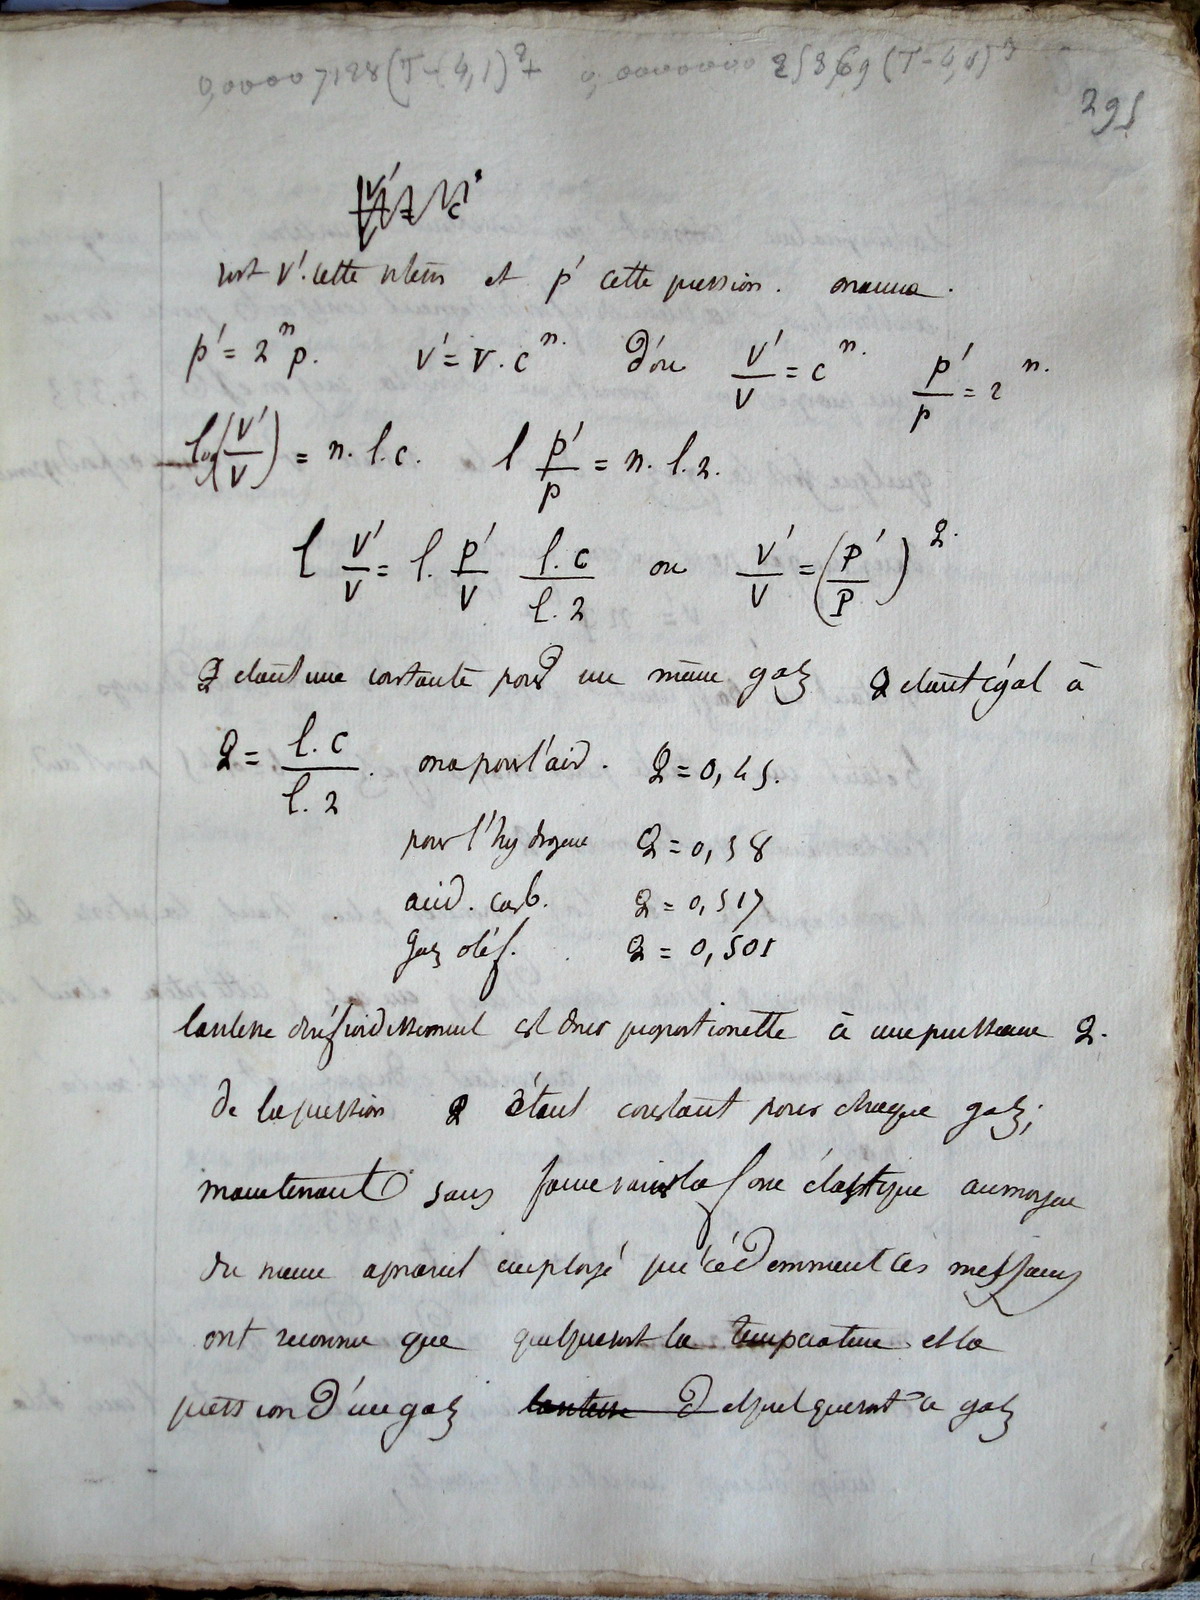 0,000007188(T-4,1)²+ 0,0000000 25869 (T-4,1)³
295
soit v'. cette vitesse et p' cette pression. on aura.
p' = 2ⁿ p. v' = v. cⁿ. d'où v'/v = cⁿ. p'/p = 2ⁿ.
log(v'/v) = n. l. c. l p'/p = n. l. 2.
l v'/v = l. p'/v l. c / l. 2 ou v'/v = (p'/p)^Q.
Q étant une constante pour un même gaz Q étant égal à
Q = l. c / l. 2. on a pour l'air. Q = 0,45.
pour l'hydrogene Q = 0,38
acid. carb. Q = 0,517
gaz oléf. Q = 0,501
la vitesse de réfroidissement est donc proportionelle à une puissance Q.
de la pression Q étant constant pour chaque gaz;
maintenant sans faire varier la force élastique au moyen
du meme apareil employé précédemment ces messieurs
ont reconnu que quelque soit la température et la
pression d'un gaz la vitesse d et quelque soit ce gaz